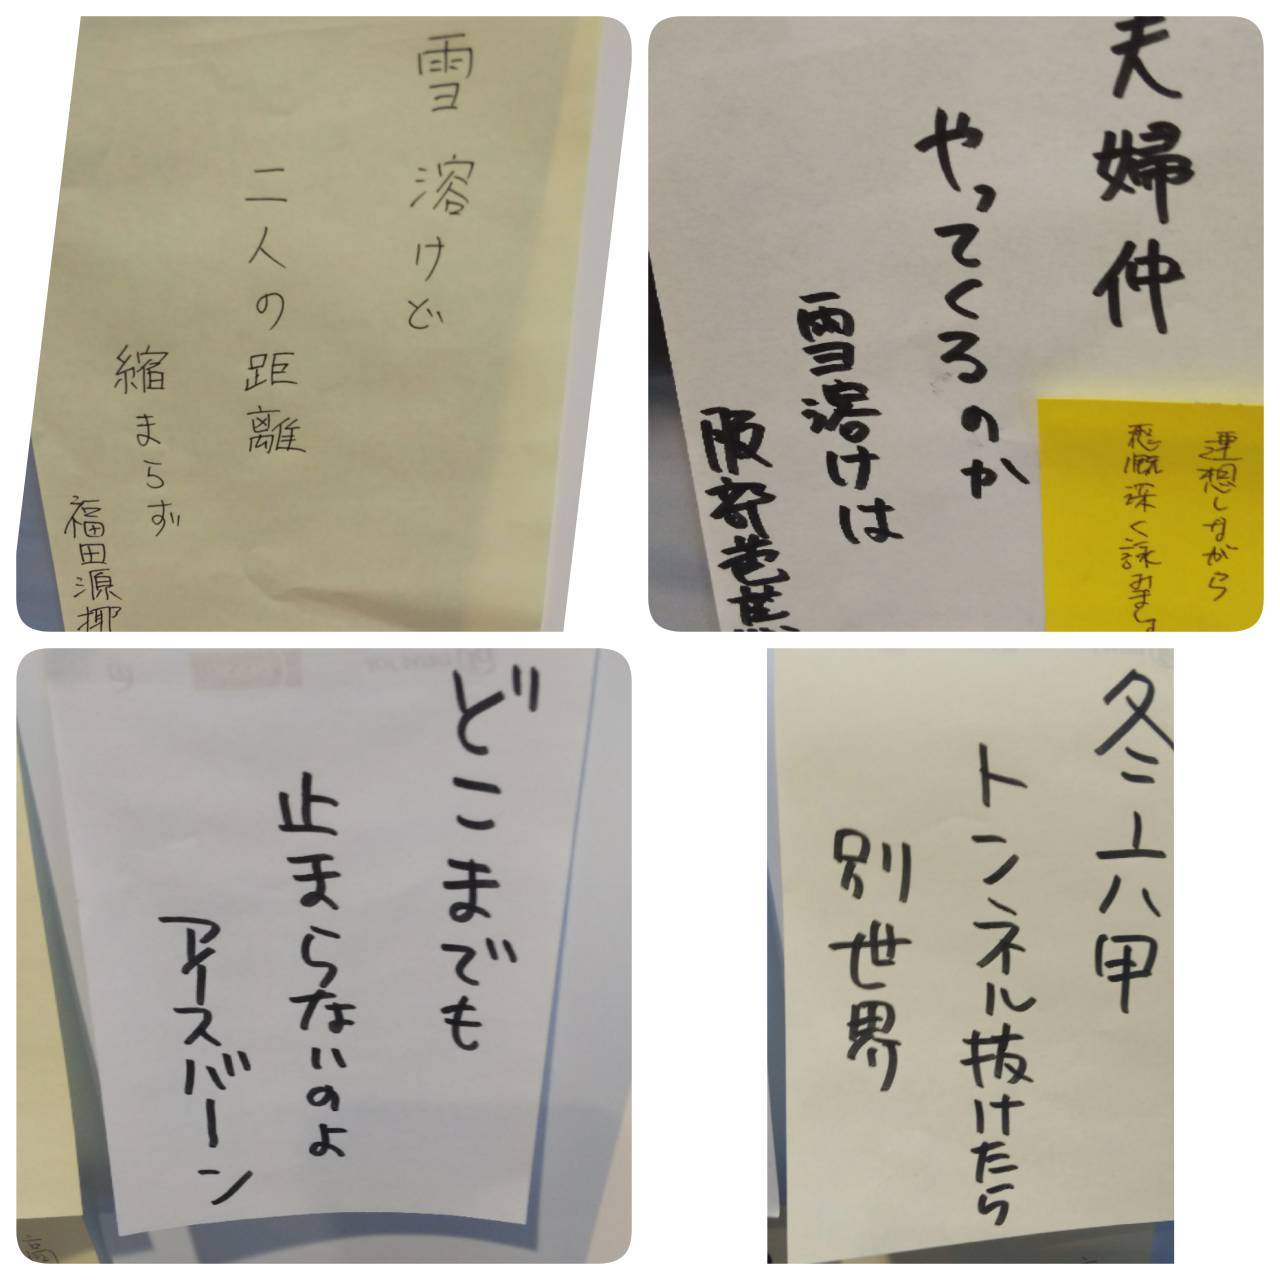 雪溶けど
二人の距離
縮まらず
福田源揶
夫婦仲
やってくるのか
雪溶けは
阪奇芭蕉
連想しながら
感慨深く詠みます
どこまでも
止まらないのよ
アイスバーン
冬六甲
トンネル抜けたら
別世界